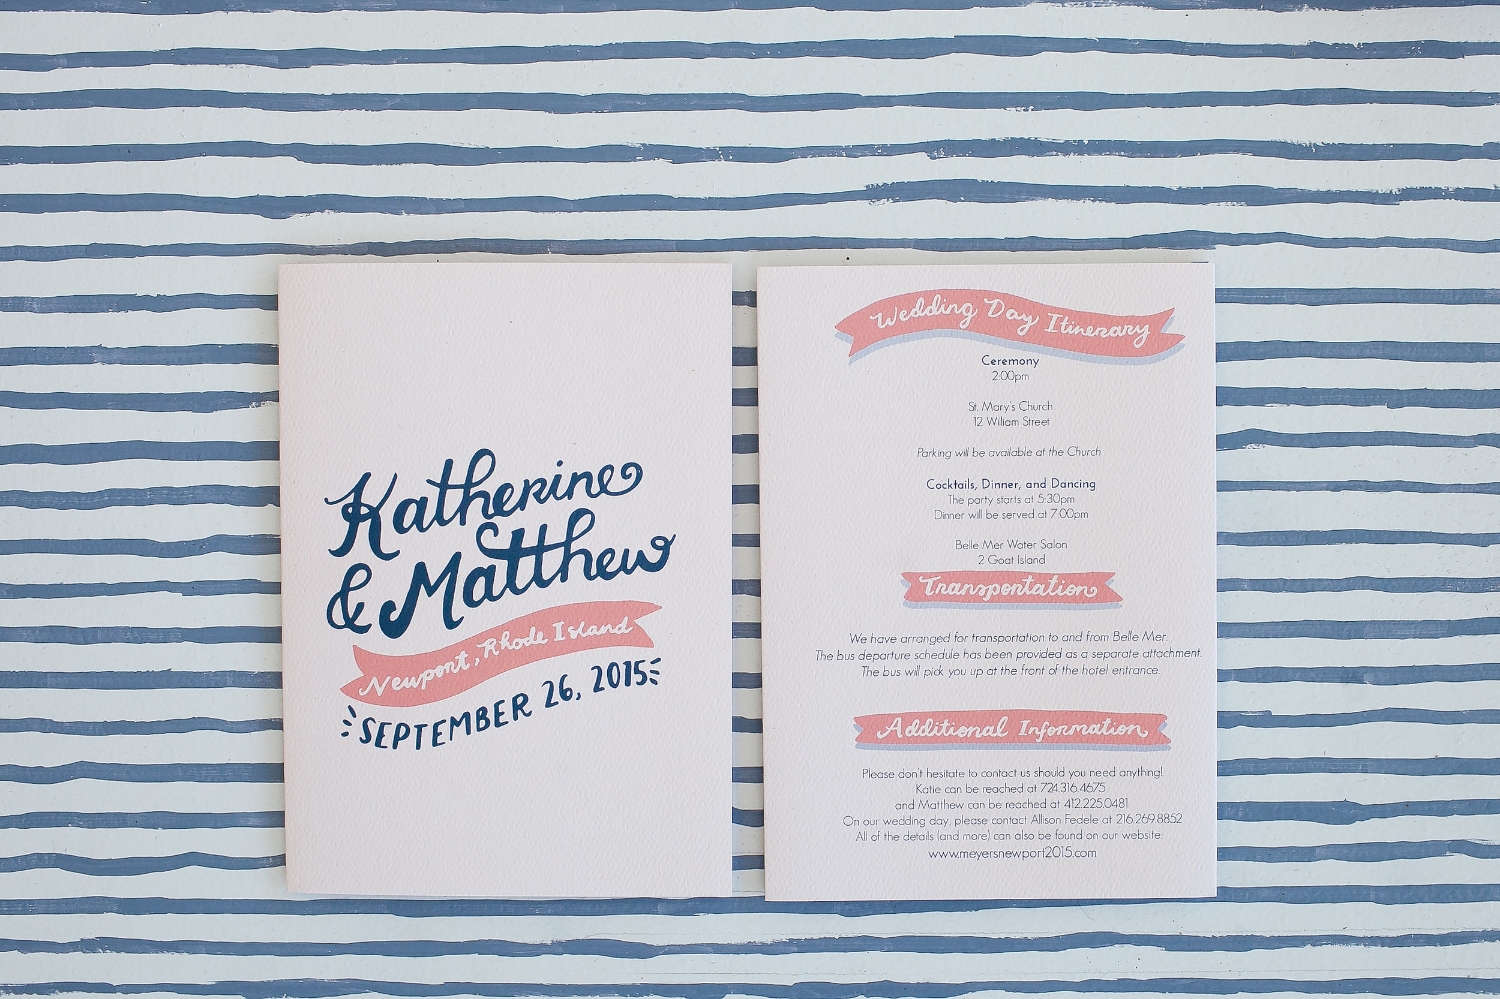 Katherine
& Matthew
Newport, Rhode Island
SEPTEMBER 26, 2015
Wedding Day Itinerary
Ceremony
2:00pm
St. Mary's Church
12 William Street
Parking will be available at the Church
Cocktails, Dinner, and Dancing
The party starts at 5:30pm
Dinner will be served at 7:00pm
Belle Mer Water Salon
2 Goat Island
Transportation
We have arranged for transportation to and from Belle Mer.
The bus departure schedule has been provided as a separate attachment.
The bus will pick you up at the front of the hotel entrance.
Additional Information
Please don't hesitate to contact us should you need anything!
Katie can be reached at 724.316.4675
and Matthew can be reached at 412.225.0481
On our wedding day, please contact Allison Fedele at 216.269.8852
All of the details (and more) can also be found on our website:
www.meyersnewport2015.com